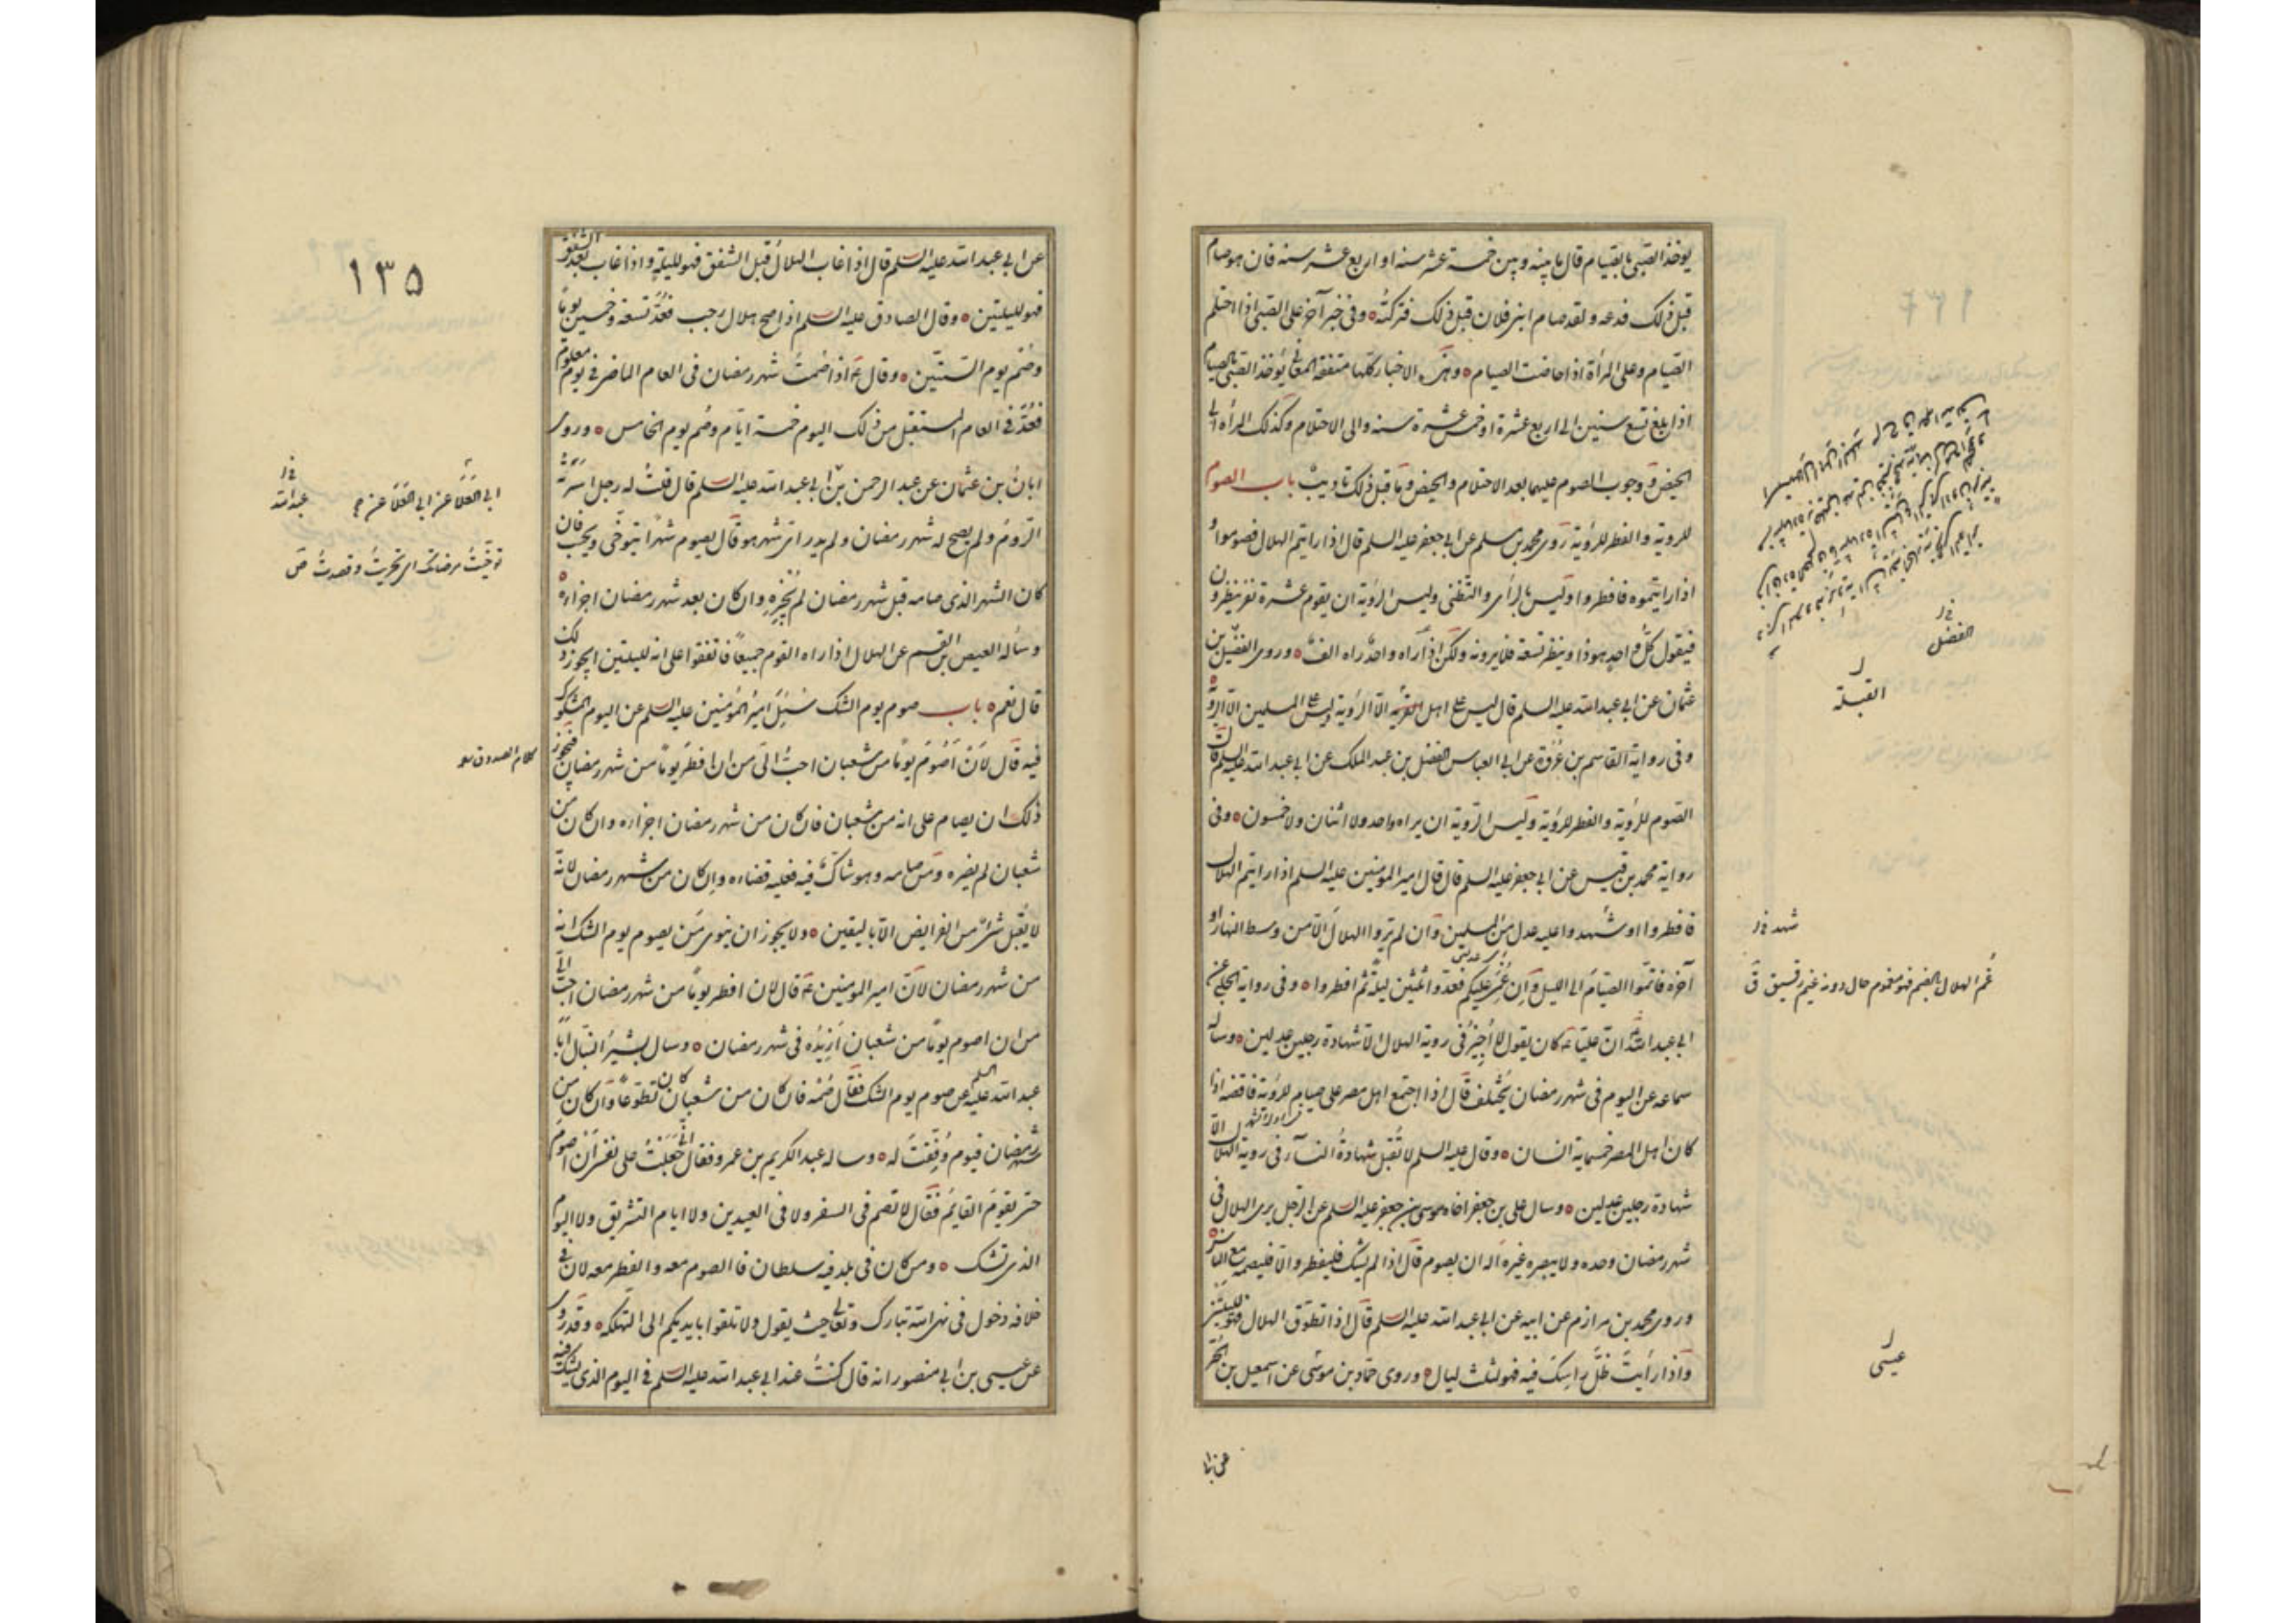 يوخذ الصبى بالصيام قال ما بينه وبين خمسة عشر سنة او اربع عشر سنة فان هو صام
قبل ذلك فدعه ولقد صام ابنى فلان قبل ذلك فتركته ٥ وفى خبر آخر على الصبى اذا احتلم
الصيام وعلى المرأة اذا حاضت الصيام ٥ وهذه الاخبار كلها متفقة المعانى يُوخذ الصبى بالصيام
اذا بلغ تسع سنين الى اربع عشرة او خمس عشرة سنة والى الاحتلام وكذلك المرأة الى
الحيض و وجوب الصوم عليهما بعد الاحتلام والحيض وما قبل ذلك تاديب باب الصوم
للروية والفطر للرؤية روى محمد بن مسلم عن ابى جعفر عليه السلم قال اذا رايتم الهلال فصوموا و
اذا رايتموه فافطروا وليس بالرأى والتظنى وليس الروية ان يقوم عشرة نفر ينظرون
فيقول كل واحد هوذا وينظر تسعة فلا يرونه ولكن اذا رآه واحد راه الف ٥ وروى الفضيل بن
عثمان عن ابى عبد الله عليه السلم قال ليس على اهل القبلة الا الرؤية وليس على المسلمين الا الروية
وفى رواية القاسم بن عروة عن ابى العباس الفضل بن عبد الملك عن ابى عبد الله عليه السلم قال
الصوم للرؤية والفطر للرؤية وليس الروية ان يراه واحد ولا اثنان ولا خمسون ٥ وفى
رواية محمد بن قيس عن ابى جعفر عليه السلم قال قال امير المومنين عليه السلم اذا رايتم الهلال
فافطروا او شهدوا عليه عدل من المسلمين وان لم تروا الهلال الا من وسط النهار او
آخره فاتموا الصيام الى الليل وان غم عليكم فعدوا ثلثين ليلة ثم افطروا ٥ وفى رواية الحلبى عن
ابى عبد الله ان عليا ع كان يقول لا اجيز فى روية الهلال الا شهادة رجلين عدلين ٥ وساله
سماعه عن اليوم فى شهر رمضان يُختلف قال اذا اجتمع اهل مصر على صيام للرؤية فاقضه اذا
كان اهل المصر خمسماية انسان ٥ وقال عليه السلم لا تقبل شهادة النساء فى روية الهلال الا
شهادة رجلين عدلين ٥ وسال على بن جعفر اخاه موسى بن جعفر عليه السلم عن الرجل يرى الهلال فى
شهر رمضان وحده ولا يبصره غيره اله ان يصوم قال اذا لم يشك فليفطر والا فليصمه مع الناس
وروى محمد بن مرازم عن ابيه عن ابى عبد الله عليه السلم قال اذا تطوق الهلال فهو لليلتين
واذا رأيت ظل راسك فيه فهو لثلث ليال ٥ وروى حماد بن موسى عن اسمعيل بن الحر
الفضل
القبلة
شهد
غم الهلال بالضم فهو مغموم حال دونه غيم رقيق ق
عيسى
عن ابى
عن ابى عبد الله عليه السلم قال اذا غاب الهلال قبل الشفق فهو لليلة واذا غاب بعد الشفق
فهو لليلتين ٥ وقال الصادق عليه السلم اذا صح هلال رجب فعد تسعة وخمسين يوما
وصم يوم الستين ٥ وقال ع اذا صمت شهر رمضان فى العام الماضى فى يوم معلوم
فعد فى العام المستقبل من ذلك اليوم خمسة ايام وصم يوم الخامس ٥ وروى
ابان بن عثمان عن عبد الرحمن بن ابى عبد الله عليه السلم قال قلت له رجل اسرته
الروم ولم يصح له شهر رمضان ولم يدر اى شهر هو قال يصوم شهرا يتوخى ويحسب فان
كان الشهر الذى صامه قبل شهر رمضان لم يُجزه وان كان بعد شهر رمضان اجزاه ٥
وساله العيص بن القسم عن الهلال اذا راه القوم جميعا فاتفقوا على انه لليلتين ايجوز ذلك
قال نعم ٥ باب صوم يوم الشك سئل امير المؤمنين عليه السلم عن اليوم المشكوك
فيه قال لان اصوم يوما من شعبان احب الى من ان افطر يوما من شهر رمضان فيجوز
ذلك ان يصام على انه من شعبان فان كان من شهر رمضان اجزاه وان كان من
شعبان لم يضره ومن صامه وهو شاك فيه فعليه قضاءه وان كان من شهر رمضان لانه
لا يقبل شىء من الفرايض الا باليقين ٥ ولا يجوز ان ينوى من يصوم يوم الشك انه
من شهر رمضان لان امير المومنين ع قال لان افطر يوما من شهر رمضان احب الى
من ان اصوم يوما من شعبان ازيده فى شهر رمضان ٥ وسال بشير النبال ابا
عبد الله عليه السلم عن صوم يوم الشك فقال صمه فان كان من شعبان كان تطوعا وان كان من
شهر رمضان فيوم وُفّقت له ٥ وساله عبد الكريم بن عمرو فقال انى جعلت على نفسى ان اصوم
حتى يقوم القايم فقال لا تصم فى السفر ولا فى العيدين ولا ايام التشريق ولا اليوم
الذى تشك ٥ ومن كان فى بلد فيه سلطان فالصوم معه والفطر معه لان فى
خلافه دخول فى نهى الله تبارك وتعالى حيث يقول ولا تلقوا بايديكم الى التهلكه ٥ وقد روى
عن عيسى بن ابى منصور انه قال كنت عند ابى عبد الله عليه السلم فى اليوم الذى يشك فيه
١٣٥
ابى العلا عن ابى العلا عن
عبد الله
توخيت مرضاتك اى تحريت وقصدت ص
كلام الصدوق